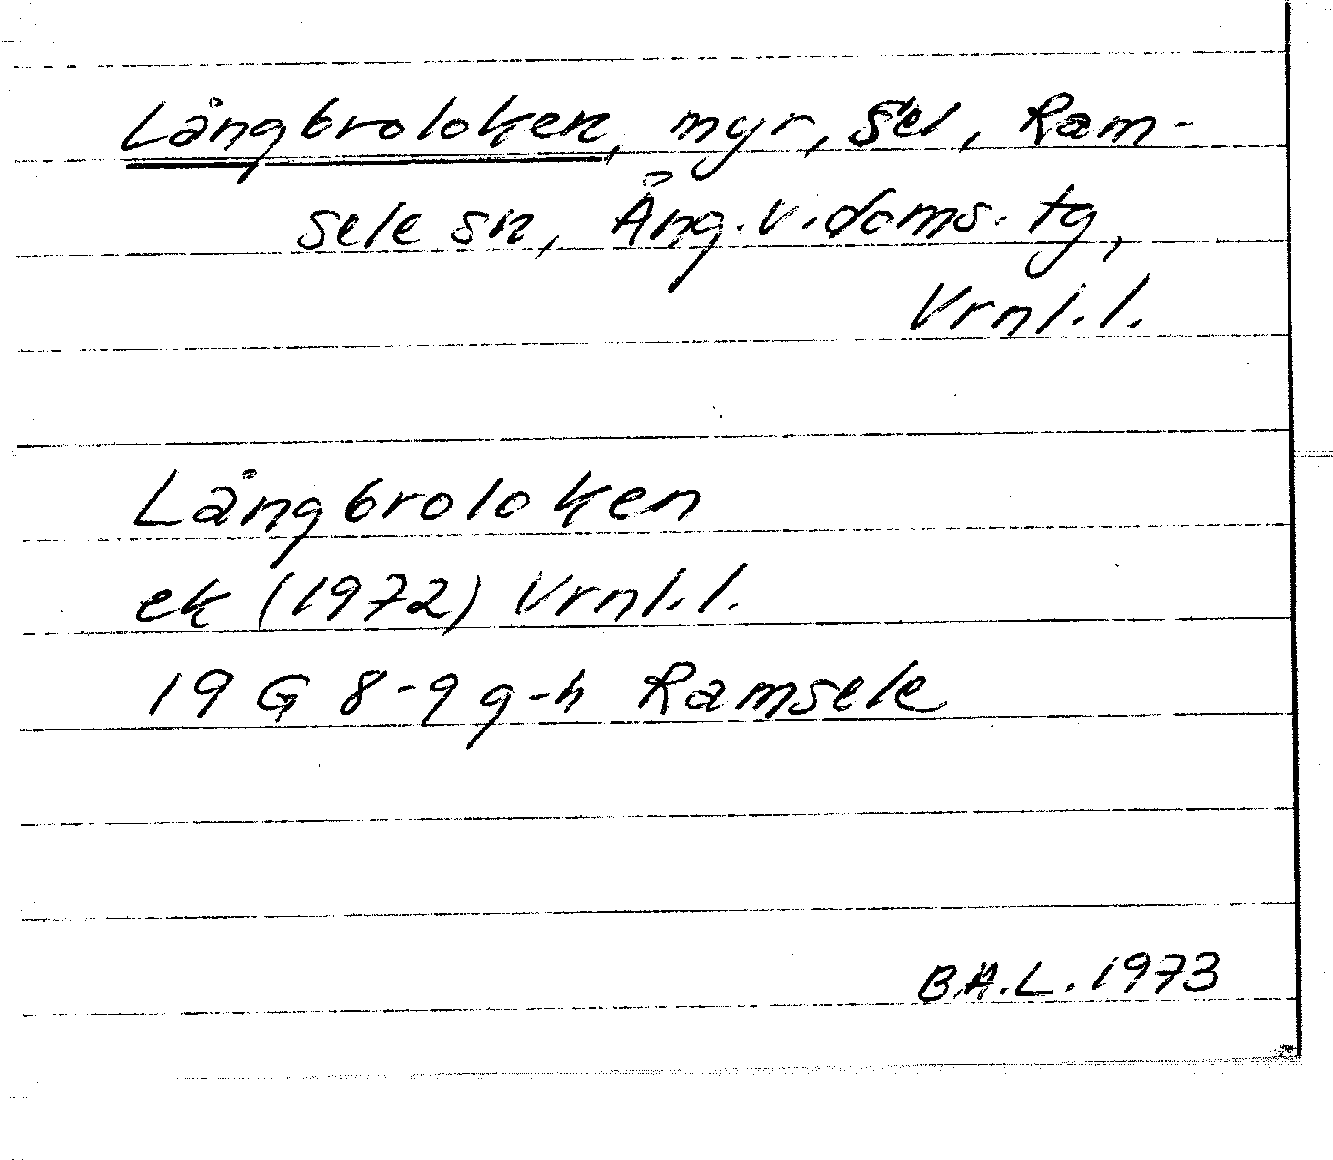 Långbroloken, myr, Sel, Ram-
sele sn, Ång.v.doms.tg,
Vrnl.l.
Långbroloken
ek (1972) Vrnl.l.
19 G 8-9 g-h Ramsele
B.A.L. 1973